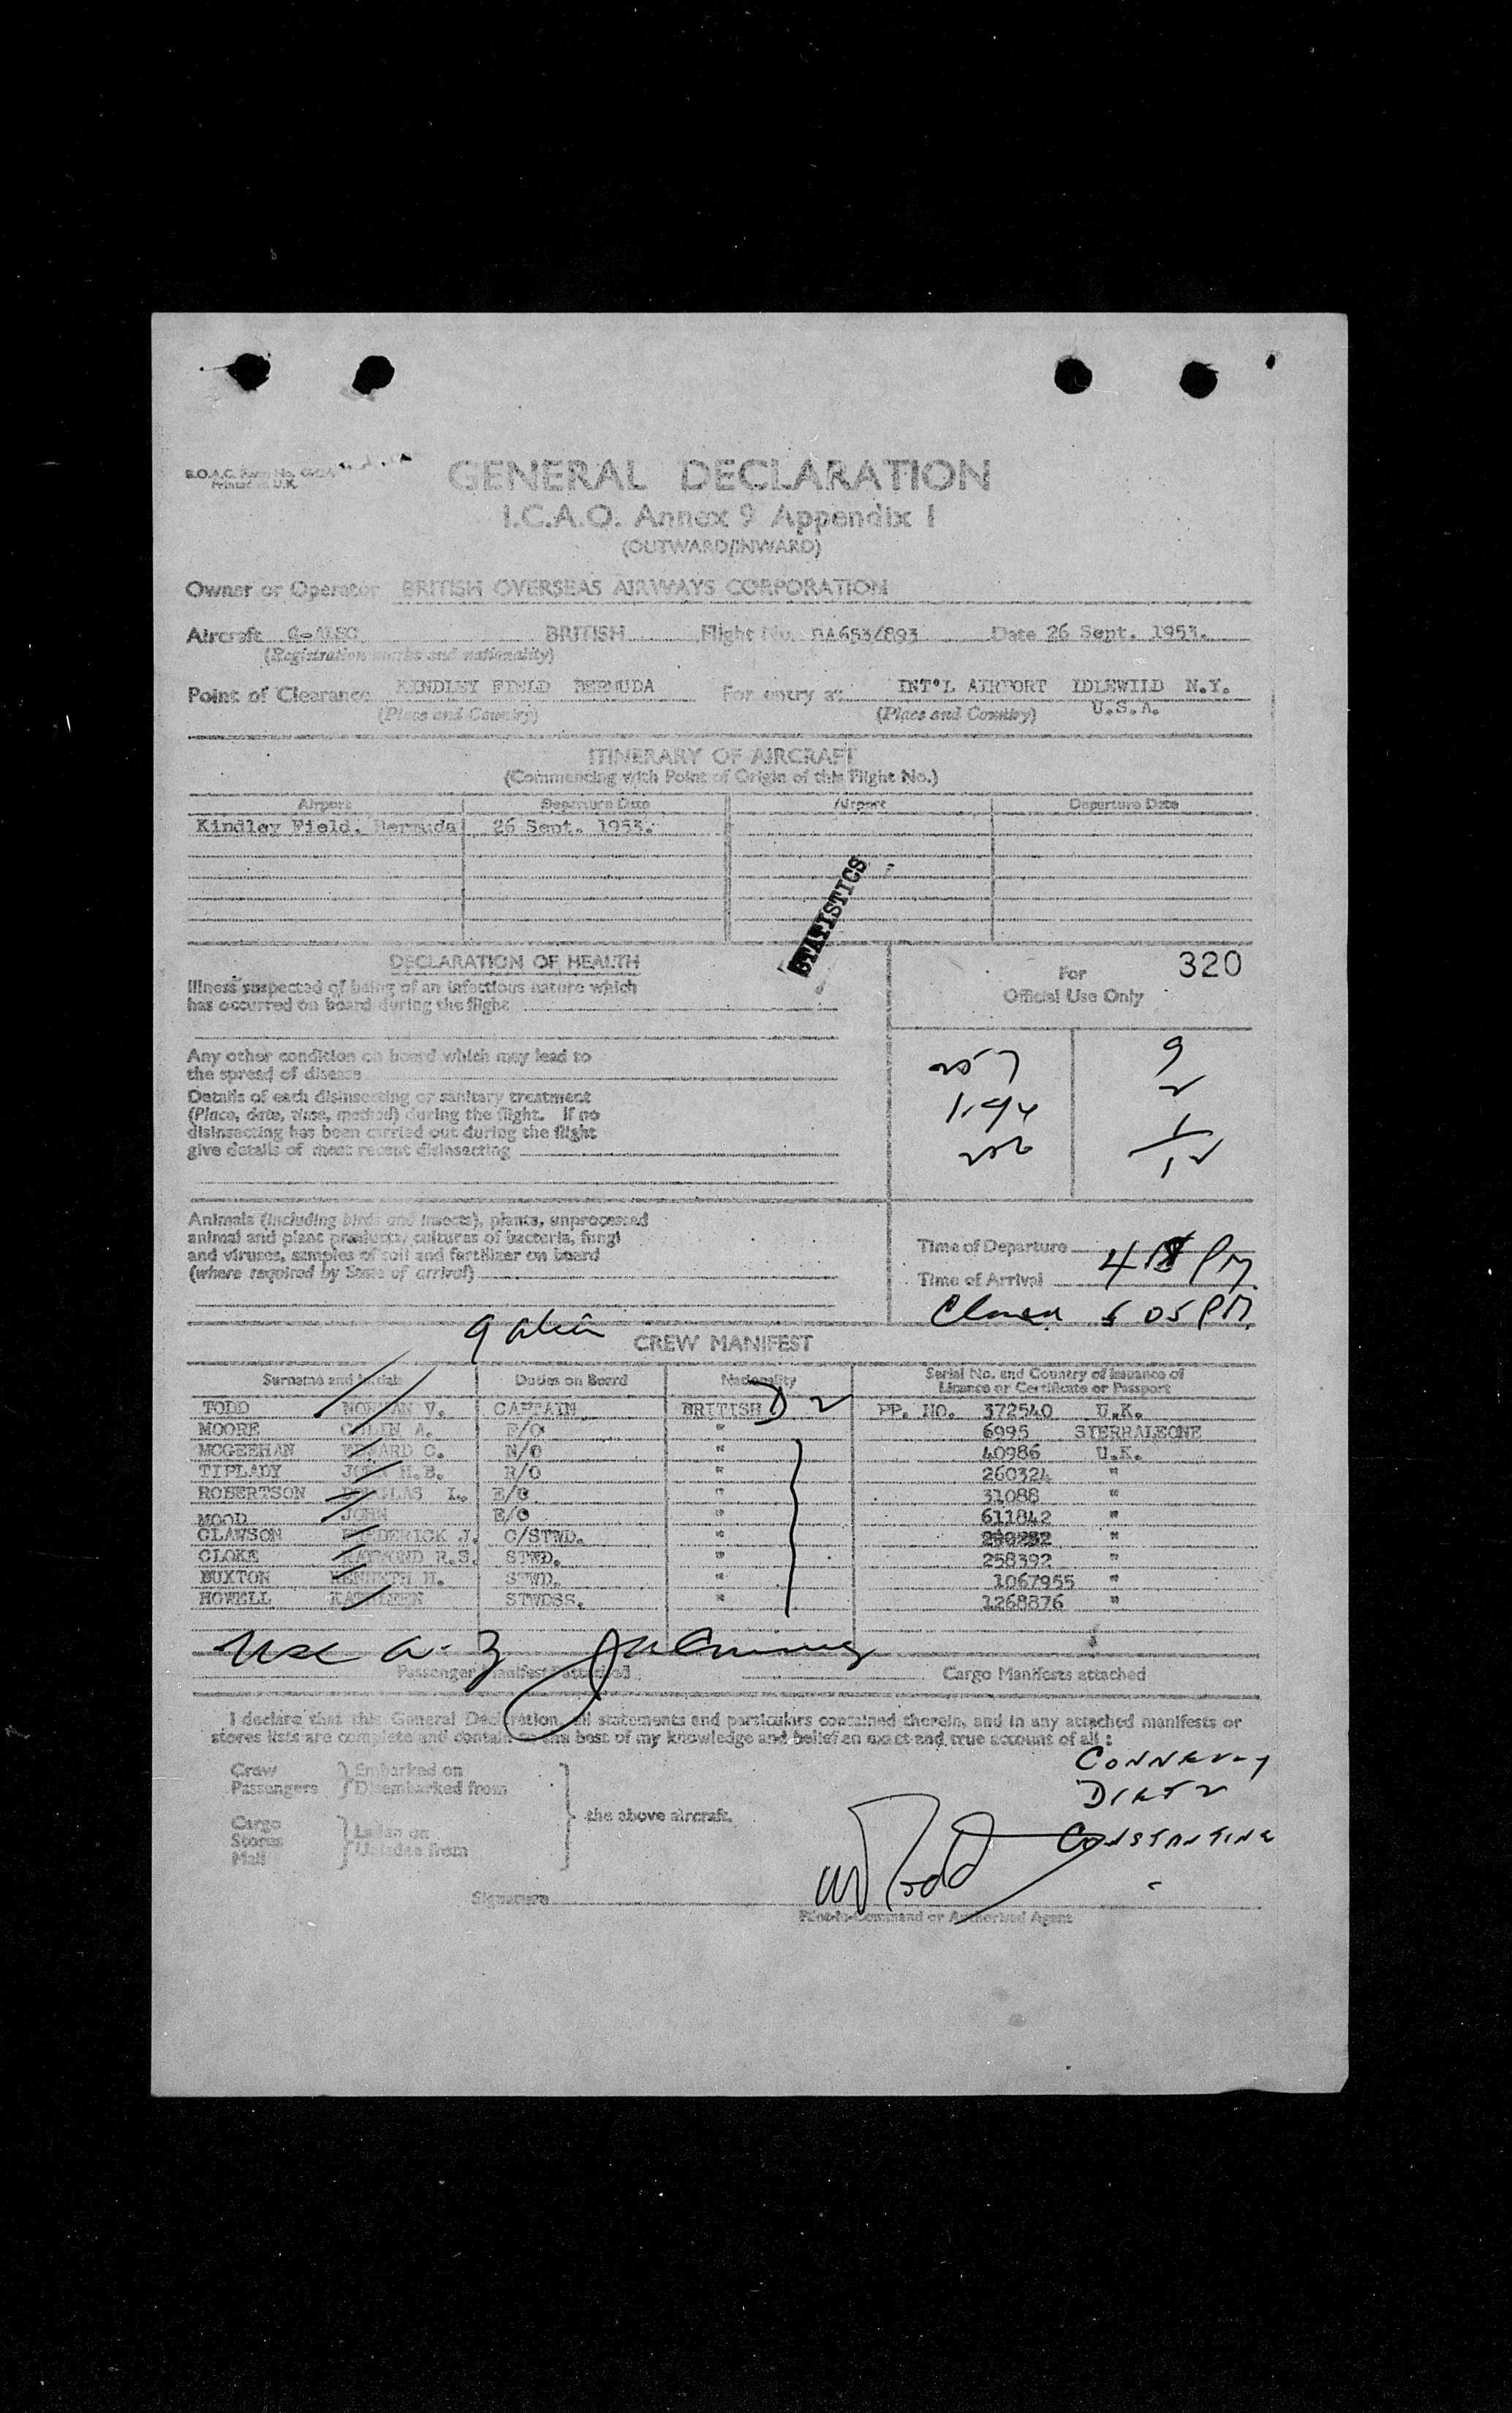 Printed in U.K.
GENERAL DECLARATION
I.C.A.O. Annex 9 Appendix I
(OUTWARD/INWARD)
Owner or Operator BRITISH OVERSEAS AIRWAYS CORPORATION
Aircraft BRITISH Flight No. BA653/893 Date 26 Sept. 1953.
(Registration marks and nationality)
Point of Clearance KINDLEY FIELD BERMUDA For entry at INT'L AIRPORT IDLEWILD N.Y.
(Place and Country) (Place and Country) U.S.A.
ITINERARY OF AIRCRAFT
(Commencing with Point of Origin of this Flight No.)
Airport Departure Date Airport Departure Date
Kindley Field, Bermuda 26 Sept. 1953.
STATISTICS
DECLARATION OF HEALTH
Illness suspected of being of an infectious nature which
has occurred on board during the flight
For 320
Official Use Only
Any other condition on board which may lead to
the spread of disease
Details of each disinsecting or sanitary treatment
(Place, date, time, method) during the flight. If no
disinsecting has been carried out during the flight
give details of most recent disinsecting
257 9
2
1
12
Animals (including birds and insects), plants, unprocessed
animal and plant products, cultures of bacteria, fungi
and viruses, samples of soil and fertilizer on board
(where required by State of arrival)
Time of Departure
Time of Arrival 418 PM
Closed 5 05 PM
9 alien
CREW MANIFEST
Surname and Initials Duties on Board Nationality Serial No. and Country of Issuance of
Licence or Certificate or Passport
TODD NORMAN V. CAPTAIN BRITISH D 2 PP. NO. 372540 U.K.
MOORE COLIN A. F/O " 6995 SIERRALEONE
MCGEEHAN EDWARD C. N/O " 40986 U.K.
TIPLADY JOHN H.B. R/O " 260324 "
ROBERTSON DOUGLAS I. E/O " 31088 "
MOOD JOHN E/O " 611842 "
CLAWSON FREDERICK J. C/STWD. " "
CLOKE RAYMOND R.S. STWD. " 258392 "
BUXTON KENNETH H. STWD. " 1067955 "
HOWELL KATHLEEN STWDSS. " 1268876 "
Passenger Manifest attached Cargo Manifests attached
I declare that this General Declaration, all statements and particulars contained therein, and in any attached manifests or
stores lists are complete and contain to the best of my knowledge and belief an exact and true account of all :
Crew Embarked on
Passengers Disembarked from
the above aircraft.
Cargo Laden on
Stores
Mail Unladen from
DIETZ
CONSTANTINE
Signature Todd
Pilot-in-Command or Authorised Agent